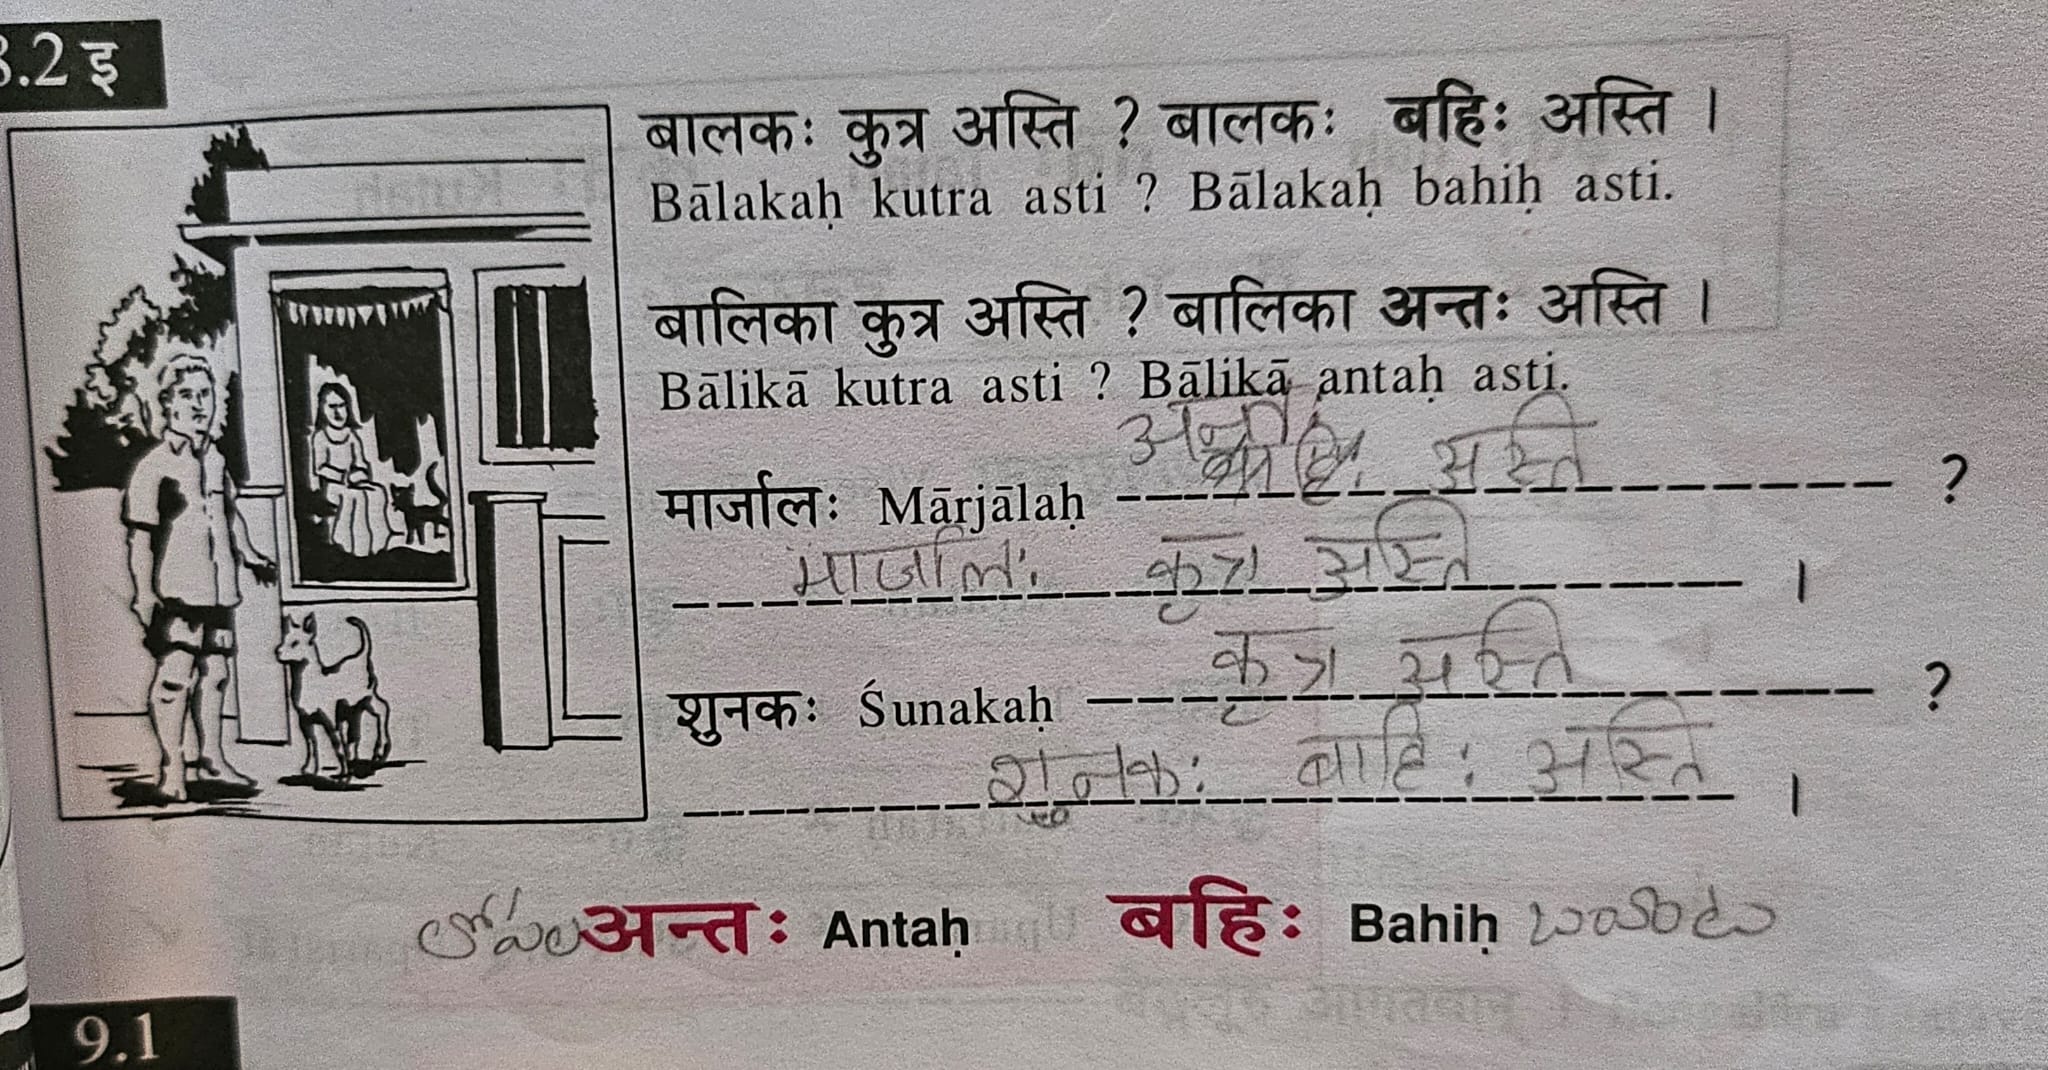 8.2 इ
बालकः कुत्र अस्ति ? बालकः बहिः अस्ति ।
Bālakaḥ kutra asti ? Bālakaḥ bahiḥ asti.
बालिका कुत्र अस्ति ? बालिका अन्तः अस्ति ।
Bālikā kutra asti ? Bālikā antaḥ asti.
मार्जालः Mārjālaḥ अस्ति ?
मार्जालः कुत्र अस्ति ।
शुनकः Śunakaḥ कुत्र अस्ति ?
शुनकः बाहिः अस्ति ।
లోపల अन्तः Antaḥ बहिः Bahiḥ బయట
9.1